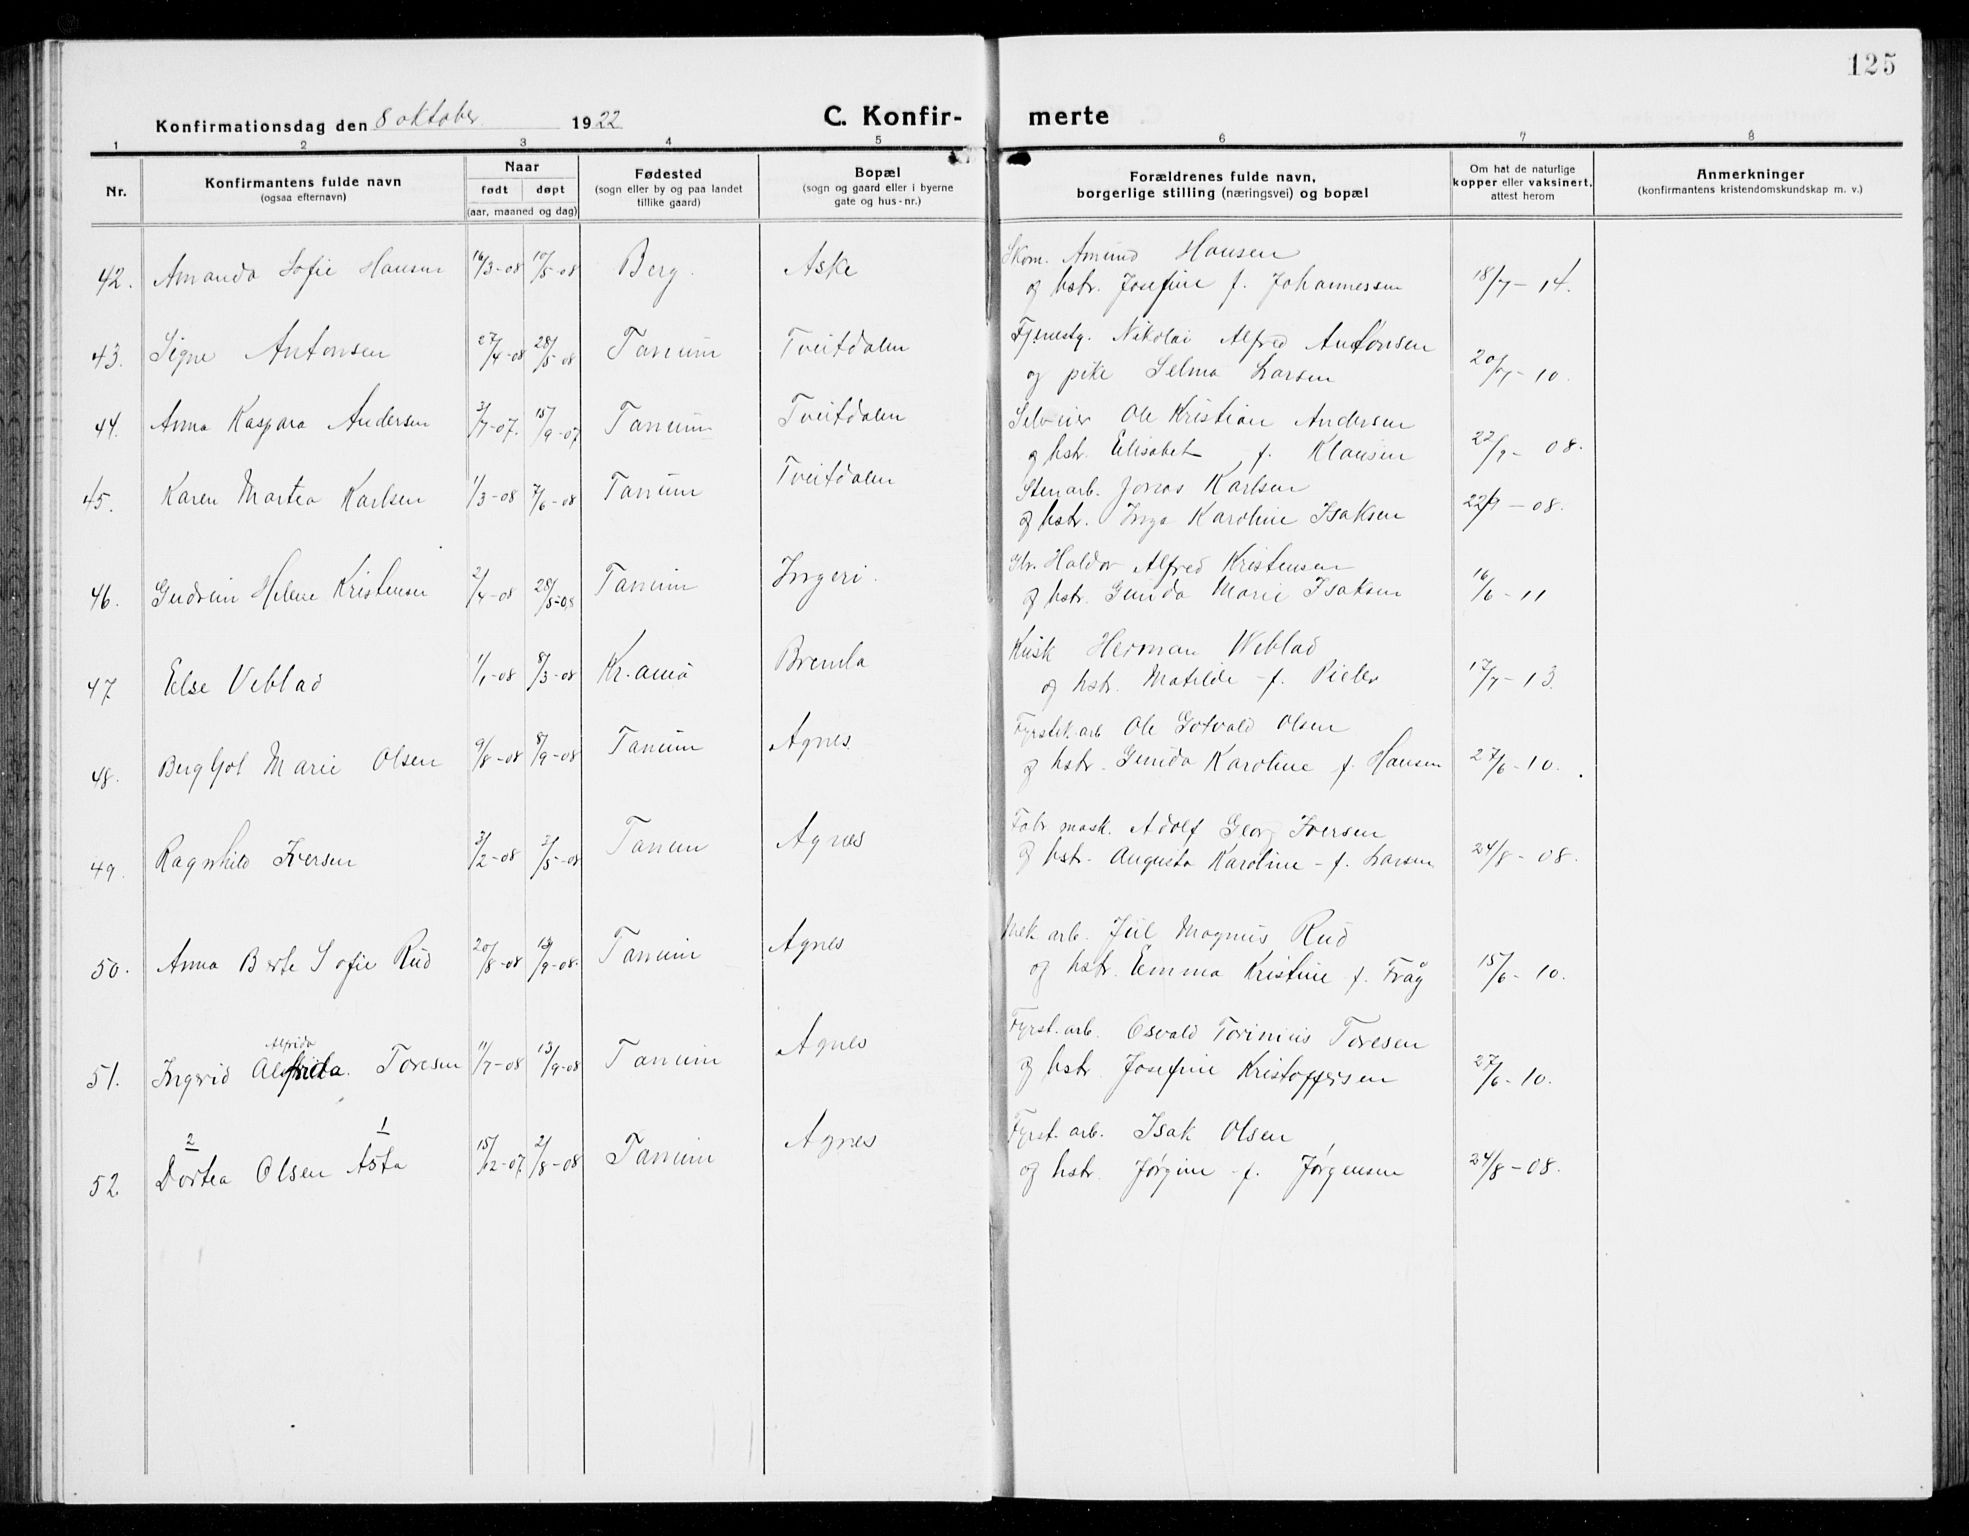 125
Konfirmationsdag den 8 oktober 1922
C. Konfir-
merte
1 2 3 4 5 6 7 8
Nr.
Konfirmantens fulde navn
(ogsaa efternavn)
Naar
født døpt
(aar, maaned og dag)
Fødested
(sogn eller by og paa landet
tillike gaard)
Bopæl
(sogn og gaard eller i byerne
gate og hus-nr.)
Forældrenes fulde navn,
borgerlige stilling (næringsvei) og bopæl
Om hat de naturlige
kopper eller vaksinert,
attest herom
Anmerkninger
(konfirmantens kristendomskundskap m. v.)
42. Amanda Sofie Hansen 16/3-08 10/5-08 Berg. Aske
Skom. Amund Hansen
og hstr. Josefine f. Johannessen 18/7-14.
43. Signe Antonsen 27/4-08 28/5-08 Tanum Tveitdalen
Tjenestg. Nikolai Alfred Antonsen
og pike Selma Larsen 20/7-10.
44. Anna Kaspara Andersen 3/7-07. 15/9-07 Tanum Tveitdalen
Selveier Ole Kristian Andersen
og hstr. Elisabet f. Klausen 22/9-08.
45. Karen Martea Karlsen 1/3-08 7/6-08 Tanum Tveitdalen
Stenarb. Jonas Karlsen
og hstr. Inga Karoline Isaksen 22/9-08.
46. Gudrun Helene Kristensen 2/4-08 28/5-08 Tanum Ingeri.
Haldor Alfred Kristensen
og hstr. Gunda Marie Isaksen 16/6-11
47 Else Veblad 1/1-08 8/3-08 Kr.ania Bremla
Kusk Herman Weblad
og hstr. Matilde f. Pieler 17/7-13.
48. Bergljot Marie Olsen 9/8-08 8/9-08 Tanum Agnes.
Fyrstik.arb Ole Gotvald Olsen
og hstr. Gunda Karoline f. Hansen 27/6-10.
49. Ragnhild Iversen 3/2-08 3/5-08 Tanum Agnes
Fabr mask. Adolf Georg Iversen
og hstr. Augusta Karoline f. Larsen 24/8-08.
50. Anna Berte Sofie Rud 20/8-08 13/9-08. Tanum Agnes
Mek arb. Jul Magnus Rud
og hstr. Emma Kristine f. Tråg 15/6-10.
Alfrida
51. Ingrid Toresen 11/7-08 13/9-08 Tanum Agnes
Fyrst.arb. Osvald Torinius Toresen
og hstr. Josefine Kristoffersen 27/6-10.
2 1
52 Dortea Olsen Asta 15/12-07. 2/8-08 Tanum Agnes
Fyrst.arb. Isak Olsen
og hstr. Jørgine f. Jørgensen 24/8-08.